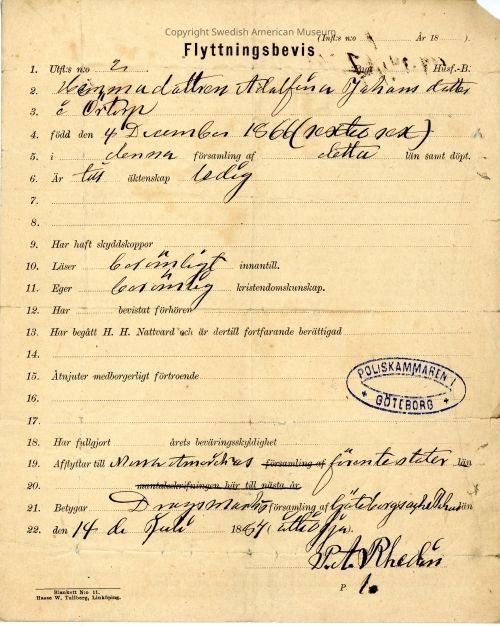 Copyright Swedish American Museum
(Infl:s n:o År 18 )
Flyttningsbevis
1. Utfl:s n:o 2. Pag. Husf.-B.
2. Hemmadottren Adolfina Johansdotter
3. i Örtorp
4. född den 4 December 1866 (sextiosex)
5. i denna församling af detta län samt döpt.
6. Är till äktenskap ledig
7.
8.
9. Har haft skyddskoppor
10. Läser berömligt innantill.
11. Eger berömlig kristendomskunskap.
12. Har bevistat förhören
13. Har begått H. H. Nattvard och är dertill fortfarande berättigad
14.
15. Åtnjuter medborgerligt förtroende
16.
POLISKAMMAREN I
GÖTEBORG
17.
18. Har fullgjort årets beväringsskyldighet
19. Afflyttar till Norra Amerikas församling af förenta stater län
20. mantalsskrifningen här till nästa år.
21. Betygar församling af Göteborgs och Bohus län
22. den 14 de Juli 1887 (åttiosju).
P. A. Rhedin
P. l.
Blankett N:o 11.
Hasse W. Tullberg, Linköping.